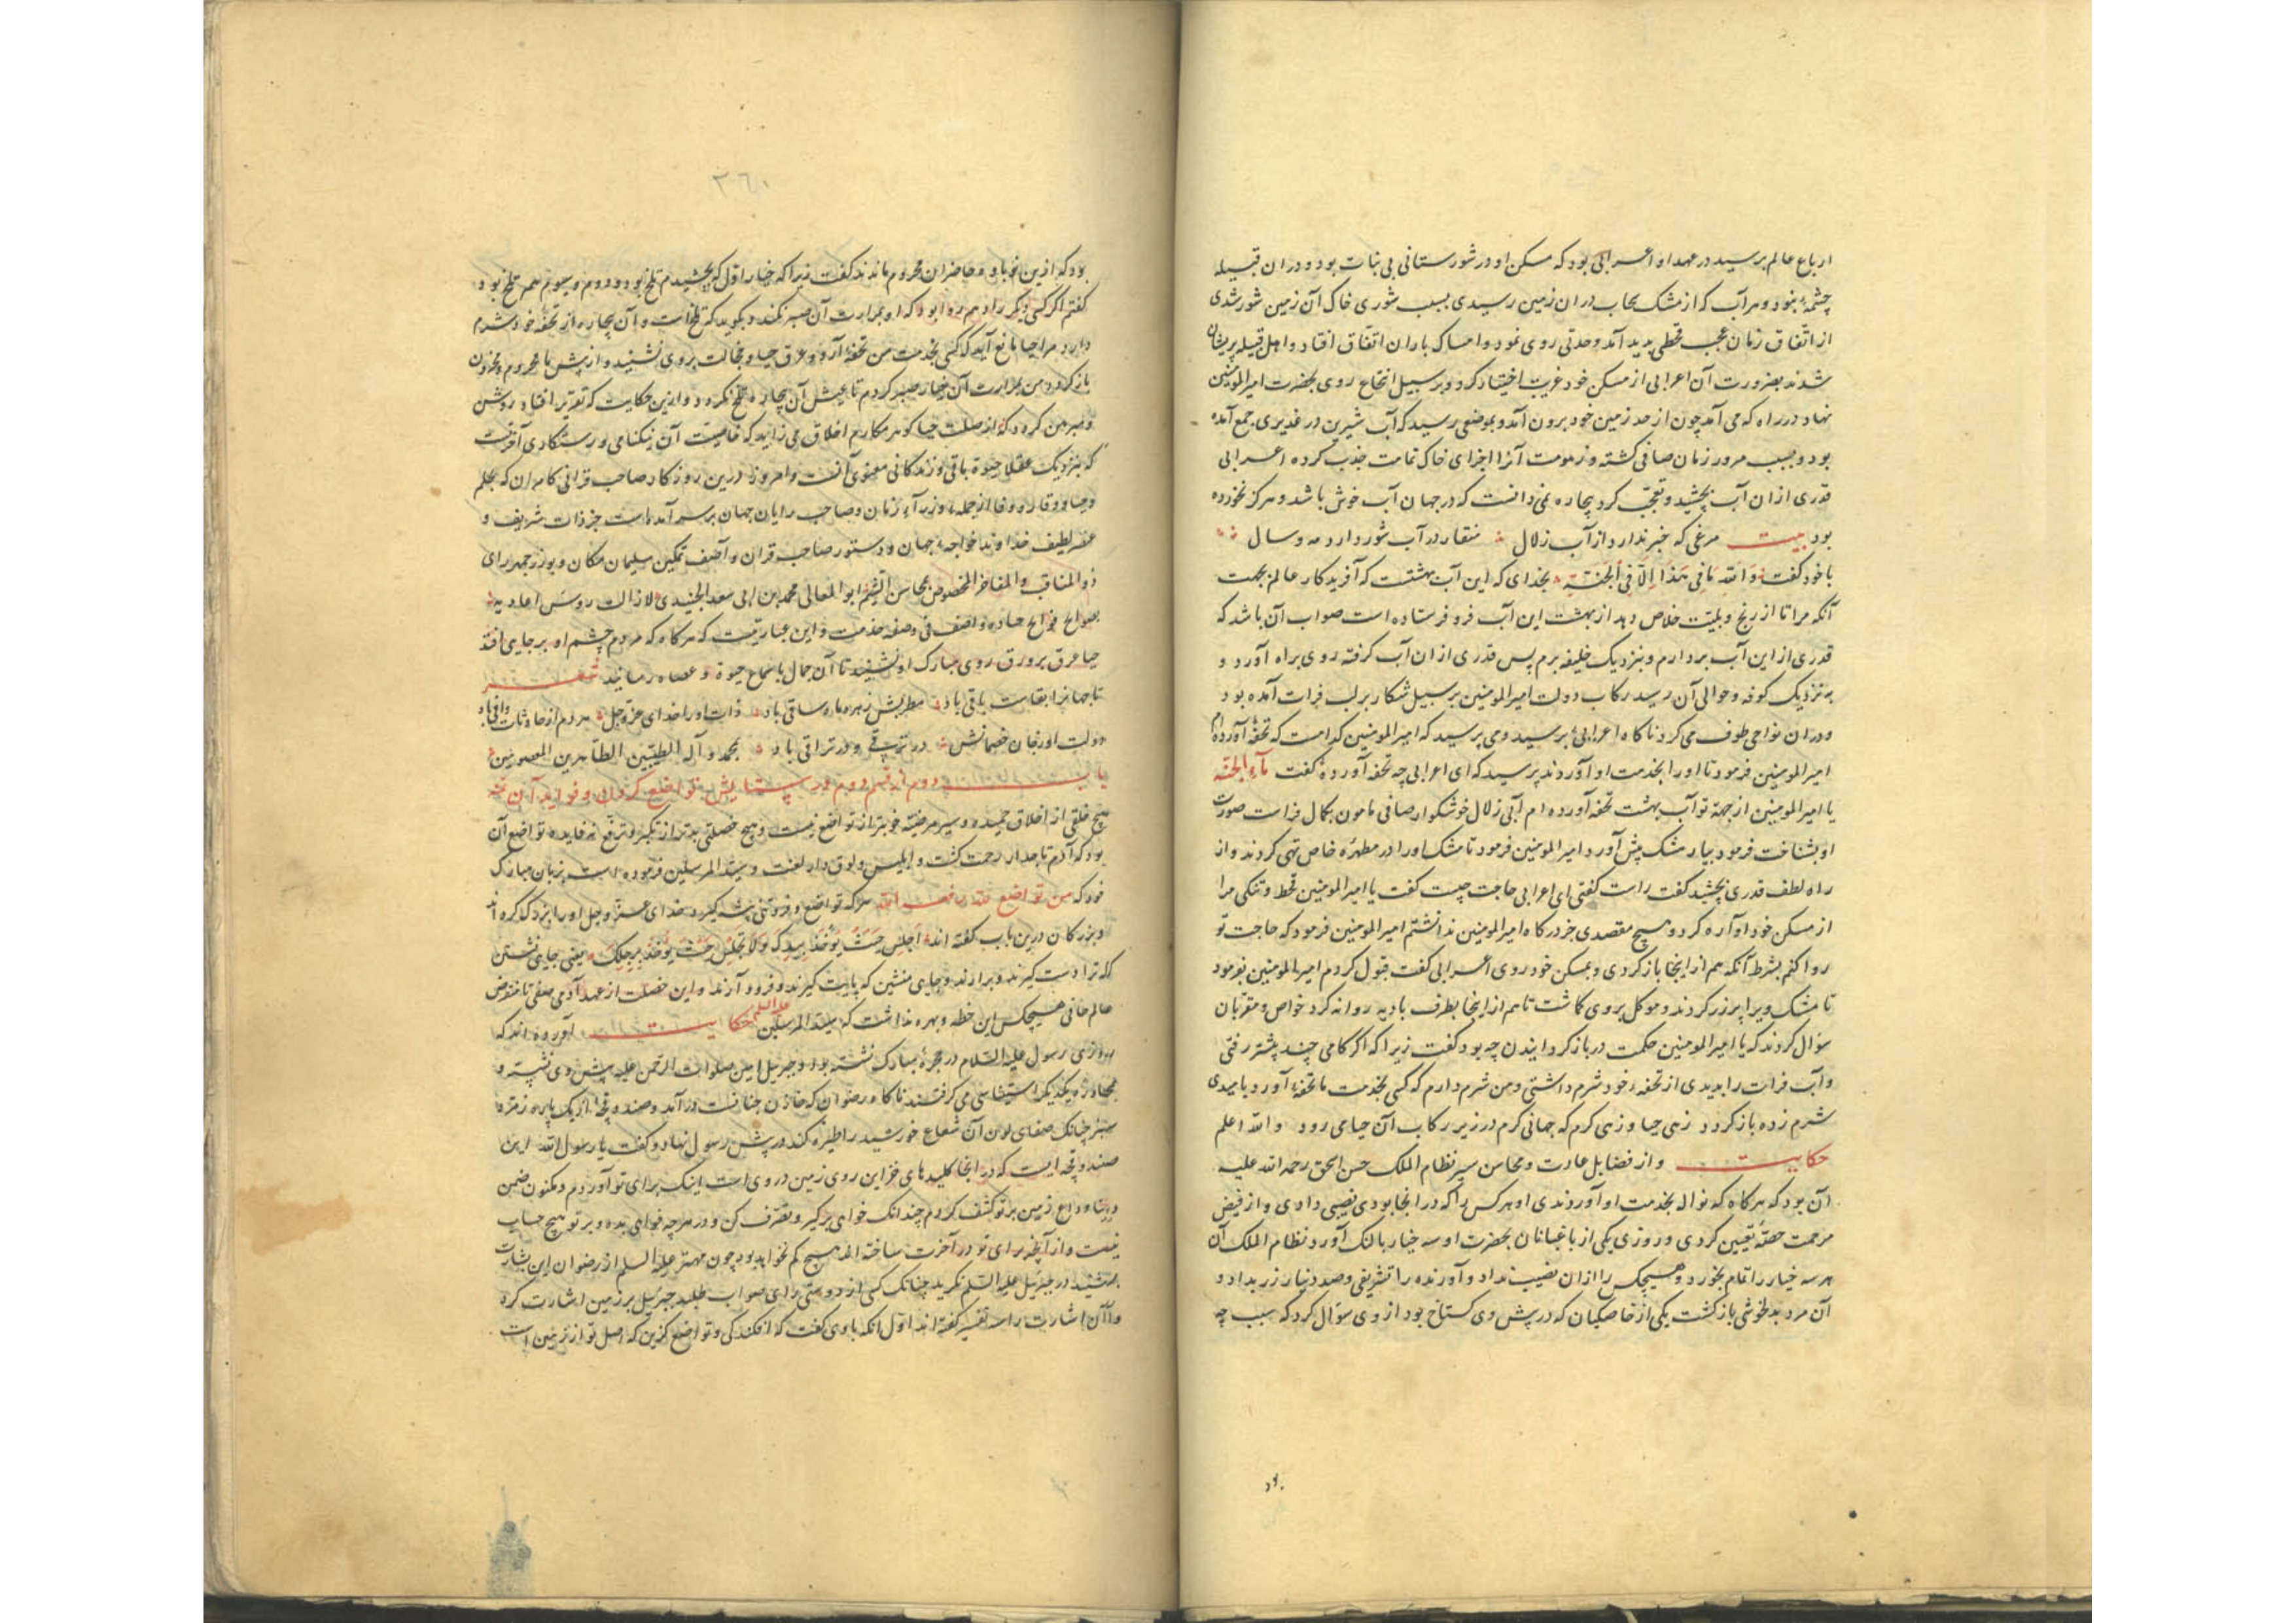 ارباع عالم برسید در عهد او اعرابی بود که مسکن او در شورستانی بی نبات بود و در ان قبیله
چشمهٔ نبود و هر آب که از مشک سحاب در ان زمین رسیدی بسبب شوری خاک آن زمین شور شدی
از اتفاق زمان عجب قحطی پدید آمد و مدتی روی نمود و امساک باران اتفاق افتاد و اهل قبیله پریشان
شدند بضرورت آن اعرابی از مسکن خود غربت اختیار کرد و بر سبیل انتجاع روی بحضرت امیر المومنین
نهاد در راه که می آمد چون از حد زمین خود برون آمد و بموضعی رسید که آب شیرین در غدیری جمع آمده
بود و بسبب مرور زمان صافی کشته و زهومت آنرا اجزای خاک تمامت جذب کرده اعرابی
قدری از ان آب بچشید و تعجب کرد بیچاره نمی دانست که در جهان آب خوش باشد و هرکز نخورده
بود بیت مرغی که خبر ندارد از آب زلال منقار در آب شور دارد مه و سال
با خود کفت وَ اللهِ مَا فِی هَذَا اِلّا فِی الجَنّة بخدای که این آب بهشتست که آفریدکار عالم بجهت
آنکه مرا تا از رنج و بلیت خلاص دهد از بهشت این آب فرو فرستاده است صواب آن باشد که
قدری از این آب بردارم و بنزدیک خلیفه برم پس قدری از ان آب کرفته روی براه آورد و
به نزدیک کوفه و حوالی آن رسید رکاب دولت امیر المومنین بر سبیل شکار بر لب فرات آمده بود
و در ان نواحی طوف می کرد ناکاه اعرابی برسید و می پرسید که امیر المومنین کدامست که تحفهٔ آورده ام
امیر المومنین فرمود تا او را بخدمت او آوردند پرسید که ای اعرابی چه تحفه آورده کفت ماء الجنة
یا امیر المومنین از جهة تو آب بهشت تحفه آورده ام آبی زلال خوشکوار صافی مامون بکمال فراست صورت
او بشناخت فرمود بیار مشک پیش آورد امیر المومنین فرمود تا مشک او را در مطهره خاص تهی کردند و از
راه لطف قدری بچشید کفت راست کفتی ای اعرابی حاجت چیست کفت یا امیر المومنین قحط و تنکی مرا
از مسکن خود آواره کرد و هیچ مقصدی جز درکاه امیر المومنین ندانستم امیر المومنین فرمود که حاجت تو
روا کنم بشرط آنکه هم از اینجا باز کردی و بمسکن خود روی اعرابی کفت قبول کردم امیر المومنین بفرمود
تا مشک ویرا پر زر کردند و موکل بروی کماشت تا هم از اینجا بطرف بادیه روانه کرد خواص و مقربان
سؤال کردند که یا امیر المومنین حکمت در باز کردانیدن چه بود کفت زیرا که اکر کامی چند پیشتر رفتی
و آب فرات را بدیدی از تحفهٔ خود شرم داشتی و من شرم دارم که کسی بخدمت ما تحفهٔ آورد باید
شرم زده باز کردد زهی حیا و زهی کرم که جهانی کرم در زیر رکاب آن حیا می رود و الله اعلم
حکایت و از فضایل عادت و محاسن سیر نظام الملک حسن اسحق رحمه الله علیه
آن بود که هرکاه که نواله بخدمت او آوردندی او هر کس را که در انجا بودی نصیبی دادی و از فیض
مرحمت حصهٔ تعیین کردی و روزی یکی از باغبانان بحضرت او سه خیار بالنک آورد نظام الملک آن
هر سه خیار را تمام بخورد و هیچکس را ازان نصیب نداد و آورنده را تشریفی و صد دینار زر بداد و
آن مرد بدلخوشی باز کشت یکی از خاصکیان که در پیش وی کستاخ بود از وی سؤال کرد که سبب چه
بود
٣٦٠
بود که ازین نوباوه حاضران محروم ماندند کفت زیرا که خیار اول که بچشیدم تلخ بود و دوم و سیوم هم تلخ بود
کفتم اکر کسی دیکر را دهم روا بود که او بمرارت آن صبر نکند و بکوید که تلخ است و آن بیچاره از تحفه خود شرم
دارد مرا حیا مانع آید که کسی بخدمت من تحفهٔ آرد و عرق حیا و خجالت بروی نشیند و از پیش ما محروم و محزون
باز کردد من بمرارت آن خیار صبر کردم تا عیش آن بیچاره تلخ نکردد و ازین حکایت که تقریر افتاد روشن
و مبرهن کردد که از خصلت حیا کوهر مکارم اخلاق می زاید که خاصیت آن نیکنامی و رستکاری آخرتست
که بنزدیک عقلا حیوة باقی و زندکانی معنوی آنست و امروز درین روزکار صاحب قرانی کامران که بحلم
و حیا و وقار و وفا از جمله وزرآء زمان و صاحب رایان جهان بر سر آمده است جز ذات شریف و
عنصر لطیف خداوند خواجهٔ جهان و دستور صاحب قران و آصف تمکین سلیمان مکان و بوزرجمهر رای
ذو المناقب و المفاخر المخصوص بمحاسن الشیم ابو المعالی محمد بن ابی سعد الجنیدی لا زالت
حیا عرق بر ورق روی مبارک او نشیند تا آن جمال
تا جهانرا بقاست باقی باد مطربش زهره ماه ساقی باد ذات او را خدای عز و جل مردم از حادثات واقی باد
دولت او در ترقی باد بمحمد و آله الطیبین الطاهرین المعصومین
باب دوم از قسم دوم در ستایش تواضع کردن و فواید آن
هیچ خلقی از اخلاق حمیده و سیر مرضیه خوبتر از تواضع نیست و هیچ خصلتی بدتر از تکبر و ترفع نه فایده تواضع آن
بود که آدم تاجدار رحمت کشت و ابلیس دلوق دار لعنت و سید المرسلین فرموده است بزبان مبارک
خود که من تواضع لله رفعه الله هرکه تواضع و فروتنی پیشه کیرد خدای عز و جل او را بزرک کرداند
و بزرکان درین باب کفته اند اجلس حیث یؤخذ بیدک و لا تجلس حیث یؤخذ برجلک یعنی جایی نشین
که ترا دست کیرند و برارند و جایی منشین که پایت کیرند و فرود آرند و این خصلت از عهد آدم صفی تا منقرض
عالم فانی هیچکس این خطه و بهره نداشت که سید المرسلین علیه السلم حکایت آورده اند که
روزی رسول علیه السلام در حجرهٔ مبارک نشسته بود و جبریل امین صلوات الرحمن علیه پیش وی نشسته و
بمحاوره یکدیکر استیناسی می کرفتند ناکاه رضوان که خازن جنانست درآمد و صندوقچهٔ از یک پاره زمرد
سبز چنانک صفای لون آن شعاع خورشید را طیره کند در پیش رسول نهاد و کفت یا رسول الله این
صندوقچه ایست که در انجا کلیدهای خزاین روی زمین در وی است اینک برای تو آوردم و مکنون ضمن
زمین بر تو کشف کردم چندانک خواهی برکیر و تصرف کن و در هر چه خواهی بده و بر تو هیچ حساب
نیست و از آنچه برای تو در آخرت ساخته اند هیچ کم نخواهد بود چون مهتر علیه السلم از رضوان این بشارت
بشنید در جبرئیل علیه السلم نکرید چنانک کسی از دوستی رای صواب طلبد جبرئیل بر زمین اشارت کرد
و آن اشارت را سه تفسیر کفته اند اول آنکه باوی کفت که افکندکی و تواضع کزین که اصل تو از زمین است